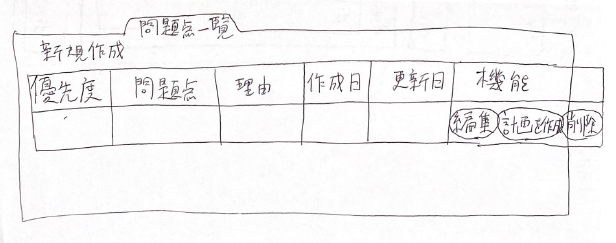 問題点一覧
新規作成
優先度 問題点 理由 作成日 更新日 機能
編集 計画を作成 削除